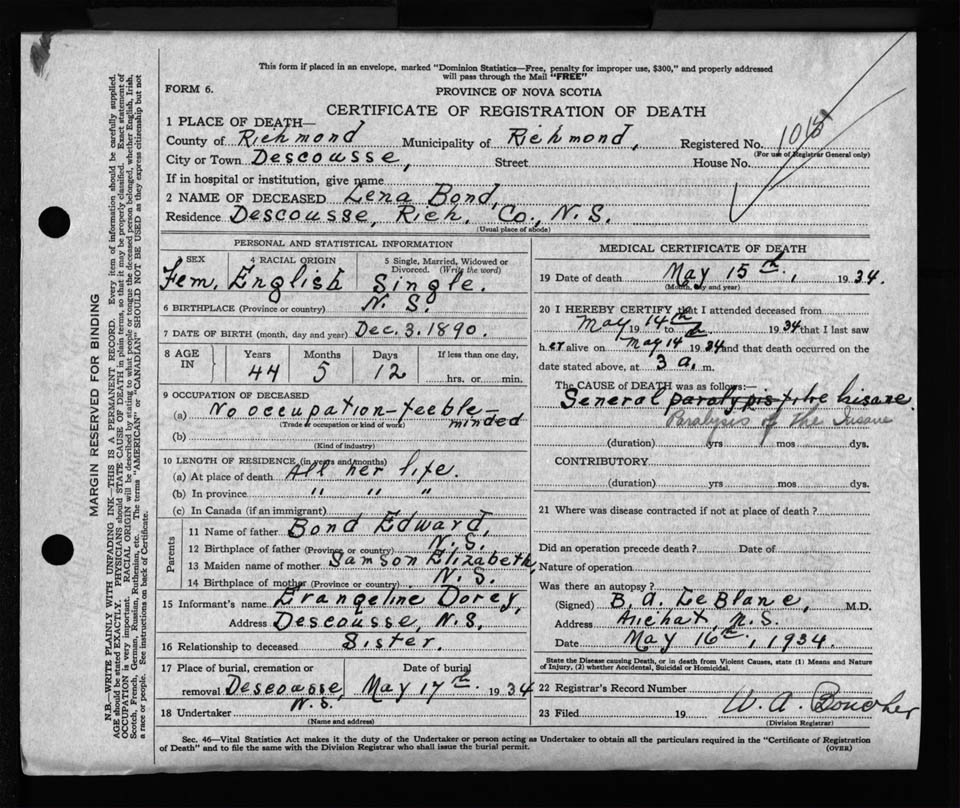 This form if placed in an envelope, marked "Dominion Statistics—Free, penalty for improper use, $300," and properly addressed
will pass through the Mail "FREE"
FORM 6.
PROVINCE OF NOVA SCOTIA
CERTIFICATE OF REGISTRATION OF DEATH
1 PLACE OF DEATH—
County of Richmond Municipality of Richmond, Registered No.
(For use of Registrar General only)
City or Town Descousse, Street House No.
If in hospital or institution, give name
2 NAME OF DECEASED Lena Bond,
Residence Descousse, Rich. Co., N.S.
(Usual place of abode)
PERSONAL AND STATISTICAL INFORMATION
SEX 4 RACIAL ORIGIN 5 Single, Married, Widowed or
Divorced. (Write the word)
Fem. English Single.
6 BIRTHPLACE (Province or country) N.S.
7 DATE OF BIRTH (month, day and year) Dec. 3. 1890.
8 AGE IN Years Months Days If less than one day,
44 5 12 hrs. or min.
9 OCCUPATION OF DECEASED
(a) No occupation—feeble-
minded
(Trade or occupation or kind of work)
(b)
(Kind of industry)
10 LENGTH OF RESIDENCE (in years and months)
(a) At place of death All her life.
(b) In province " " "
(c) In Canada (if an immigrant)
Parents
11 Name of father Bond Edward,
12 Birthplace of father (Province or country) N.S.
13 Maiden name of mother Samson Elizabeth,
14 Birthplace of mother (Province or country) N.S.
15 Informant's name Evangeline Dorey,
Address Descousse, N.S.
16 Relationship to deceased Sister.
17 Place of burial, cremation or Date of burial
removal Descousse, May 17th 1934
N.S.
18 Undertaker
(Name and address)
MEDICAL CERTIFICATE OF DEATH
19 Date of death May 15th, 1934.
(Month, day and year)
20 I HEREBY CERTIFY that I attended deceased from
May 14th 19 to 1934 that I last saw
her alive on May 14 1934 and that death occurred on the
date stated above, at 3 a. m.
The CAUSE of DEATH was as follows:—
General
Paralysis of the Insane
(duration) yrs mos dys.
CONTRIBUTORY
(duration) yrs mos dys.
21 Where was disease contracted if not at place of death?
Did an operation precede death? Date of
Nature of operation
Was there an autopsy?
(Signed) B. A. LeBlanc, M.D.
Address Arichat, N.S.
Date May 16th, 1934
State the Disease causing Death, or in death from Violent Causes, state (1) Means and Nature
of Injury, (2) whether Accidental, Suicidal or Homicidal.
22 Registrar's Record Number
23 Filed 19 W. A. Boucher
(Division Registrar)
Sec. 46—Vital Statistics Act makes it the duty of the Undertaker or person acting as Undertaker to obtain all the particulars required in the "Certificate of Registration
of Death" and to file the same with the Division Registrar who shall issue the burial permit.
(OVER)
MARGIN RESERVED FOR BINDING
N.B.—WRITE PLAINLY WITH UNFADING INK—THIS IS A PERMANENT RECORD. Every item of information should be carefully supplied.
AGE should be stated EXACTLY. PHYSICIANS should STATE CAUSE OF DEATH in plain terms, so that it may be properly classified. Exact statement of
OCCUPATION is very important. RACIAL ORIGIN will be described by stating to what people or tongue the deceased person belonged, whether English, Irish,
Scotch, French, German, Russian, Ruthenian, etc. The terms "AMERICAN" or "CANADIAN" SHOULD NOT BE USED as they express citizenship but not
a race or people. See instructions on back of Certificate.